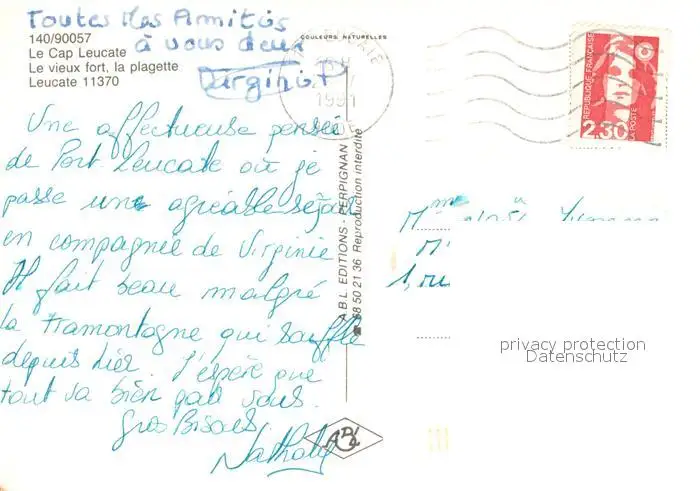 Toutes Mes Amitiés
à vous deux
Virginie P
140/90057
Le Cap Leucate
Le vieux fort, la plagette
Leucate 11370
COULEURS NATURELLES
1991
REPUBLIQUE FRANÇAISE
2,30
LA POSTE
Une affectueuse pensée
de Port Leucate où je
passe une agréable séjour
en compagnie de Virginie
Il fait beau malgré
la Tramontagne qui souffle
depuis hier. J'espère que
tout va bien pour vous.
Gros Bisous.
Nathaly
A.B.L. EDITIONS - PERPIGNAN
68 50 21 36 Reproduction interdite
ABL
Mme
1, rue
privacy protection
Datenschutz